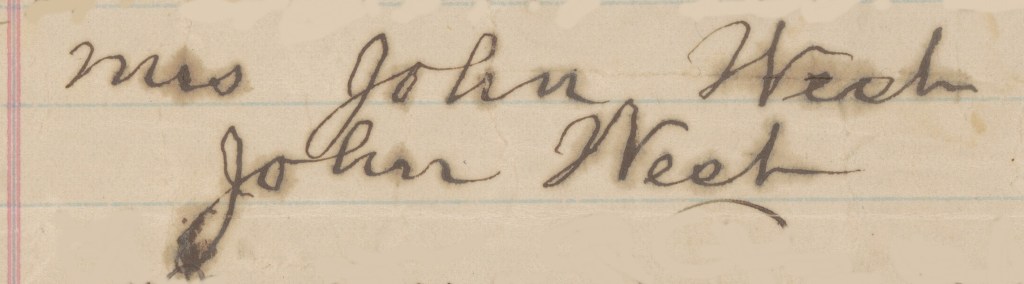 Mrs John West
John West